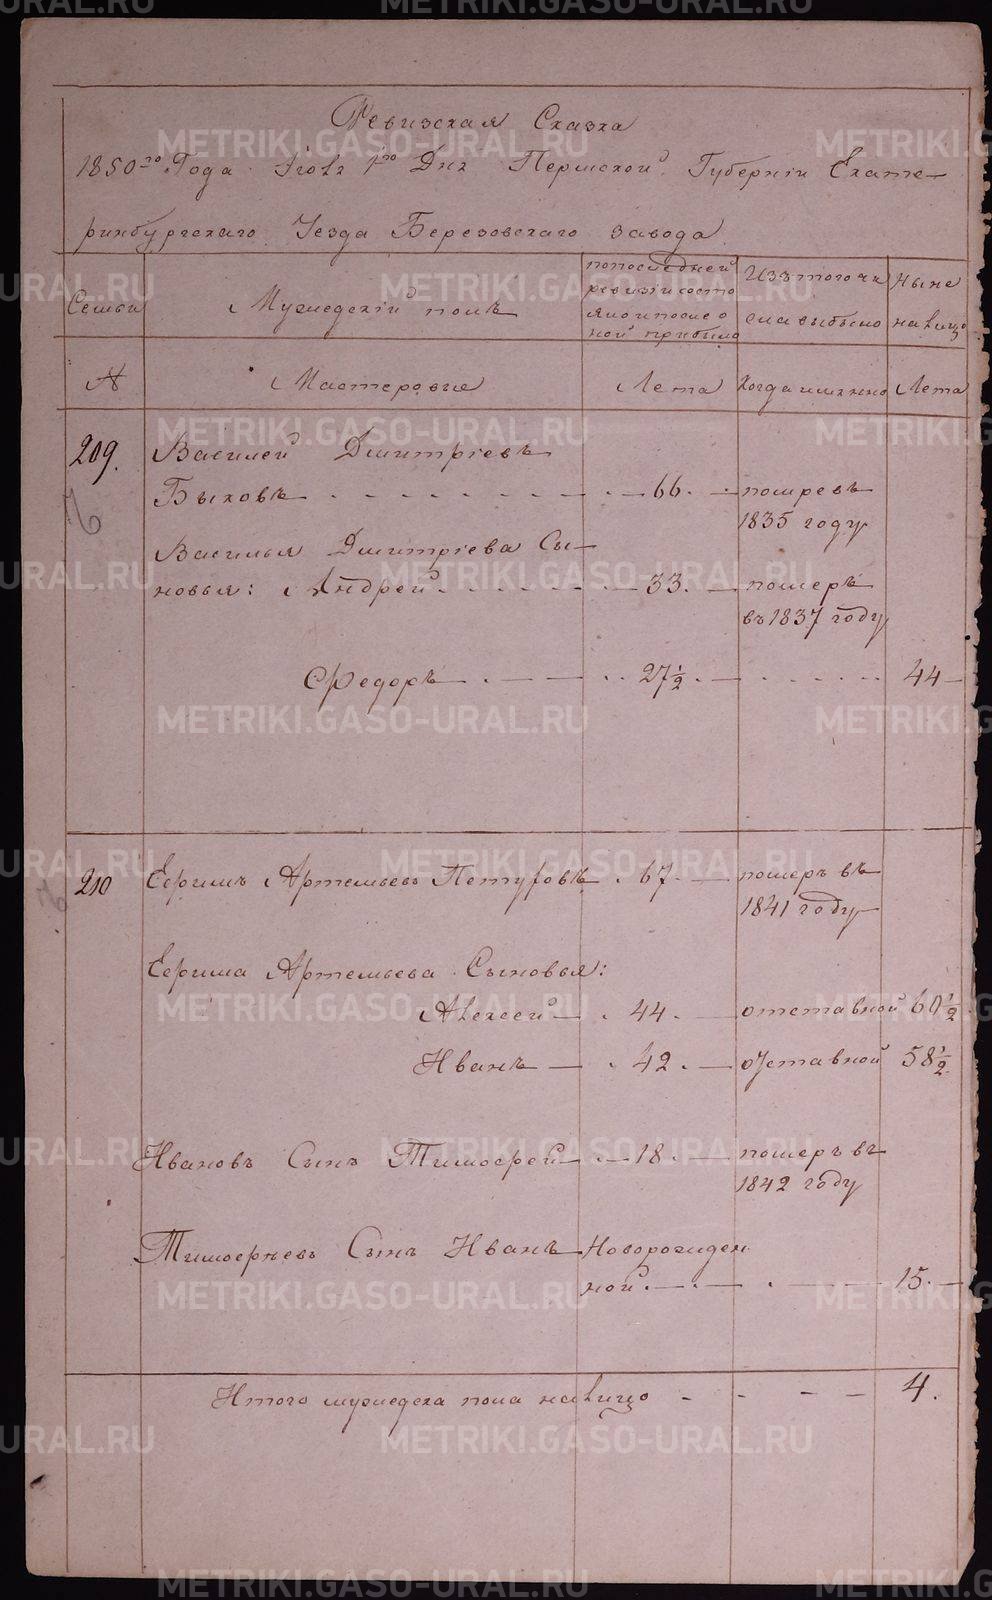 Ревизская Сказка
1850го Года Iюля 1го Дня Пермской Губернiи Екате-
ринбургскаго Уезда Березовскаго завода
Семьи
Мужедскiй полъ
попоследней ревизiи состо яло ипосле о ной прибыло
Изъ того чи сла выбыло
Ныне налицо
№
Мастеровые
Лета
Когда именно
Лета
209.
Василей Дмитрiевъ
Быковъ 66. помревъ
1835 году
Василья Дмитрiева Сы-
новья: Андрей 33. померъ
въ 1837 году
Федоръ 27 1/2 44
210 Ефимъ Артемьевъ Петуховъ 67 померъ въ
1841 году
Ефима Артемьева Сыновья:
Алексей 44 отставной 60 1/2
Иванъ 42 отставной 58 1/2
Ивановъ Сынъ Тимофей 18 померъ въ
1842 году
Тимофеевъ Сынъ Иванъ Новорожден
ной 15
Итого мужедска пола налицо 4.
METRIKI.GASO-URAL.RU